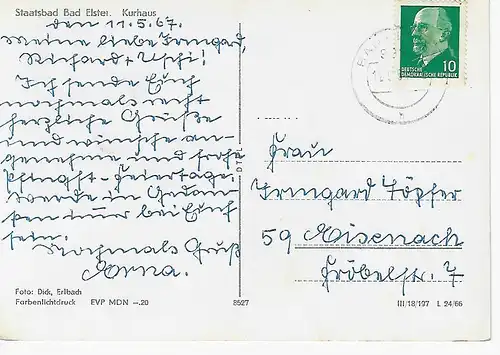 Staatsbad Bad Elster. Kurhaus
den 11.5.67.
Meine liebe Irmgard,
Richard + Uschi!
Ich sende Euch
nochmals recht
herzliche Grüße
und wünsche an-
genehme und frohe
Pfingst-Feiertage.
Werde in Gedan-
ken immer bei Euch
sein.
Nochmals Gruß
Erna.
Foto: Dick, Erlbach
Farbenlichtdruck EVP MDN —.20
8527
10
DEUTSCHE
DEMOKRATISCHE REPUBLIK
BAD
Frau
Irmgard Töpfer
59 Eisenach
Fröbelstr. 7
III/18/197 L 24/66